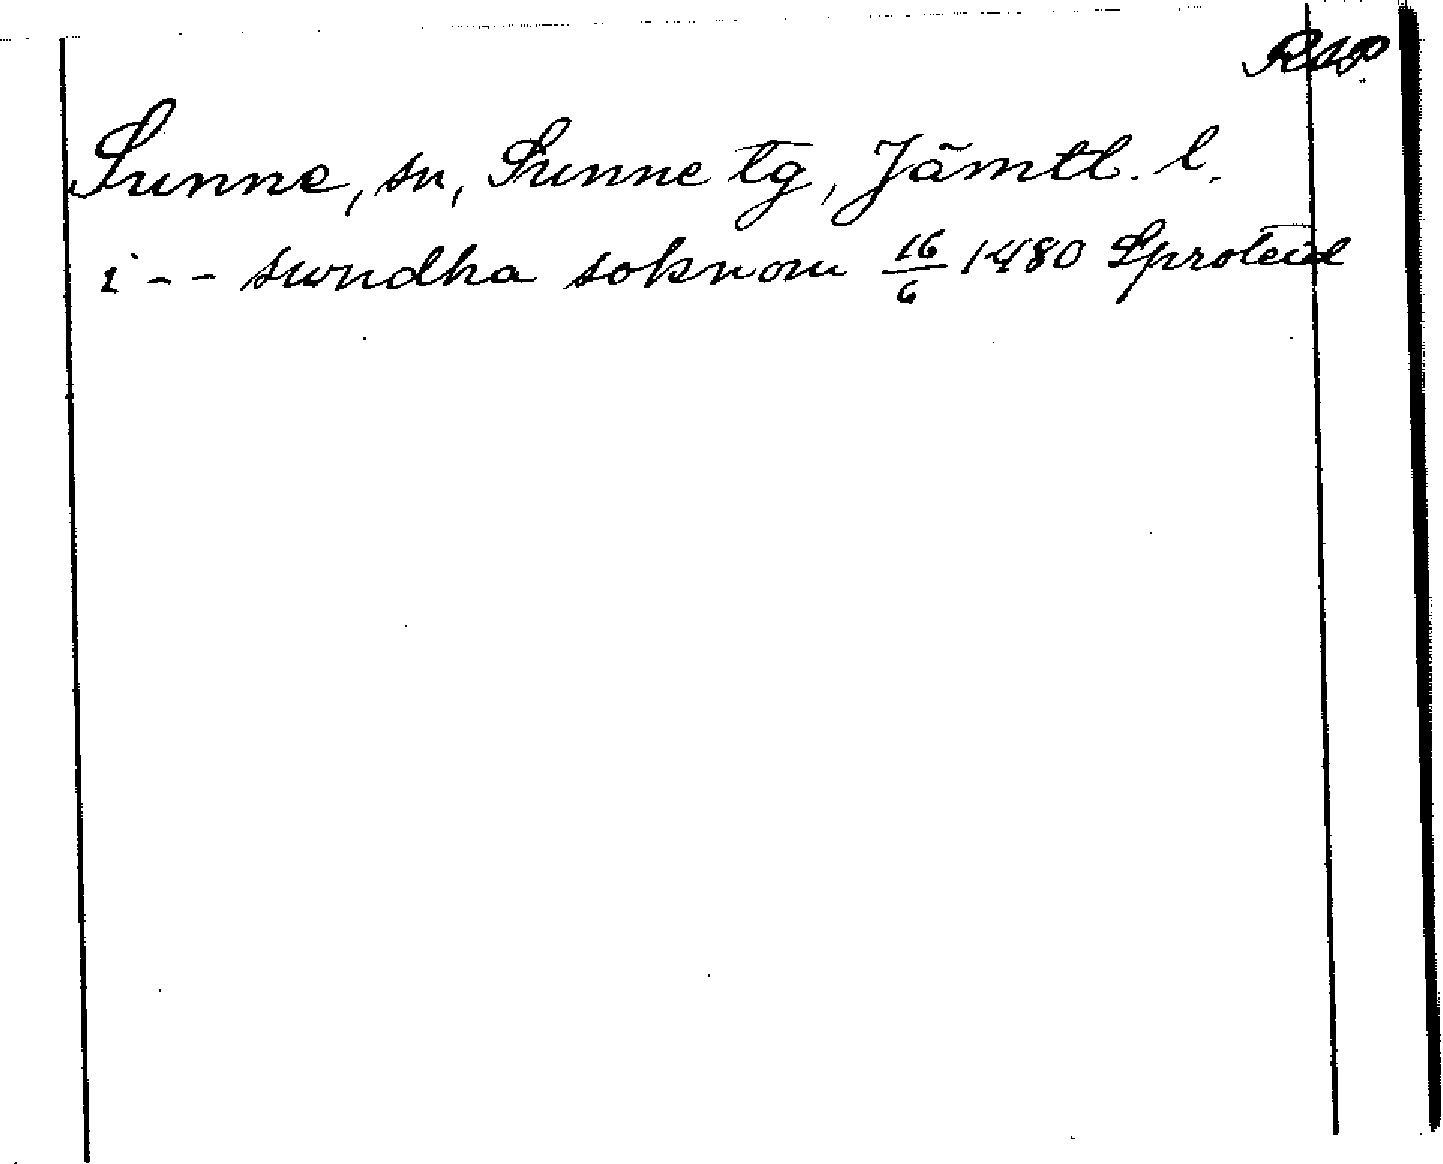 RAP
Sunne, sn, Sunne tg, Jämtl. l.
i - - swndha soknom 16/6 1480 Sproteud